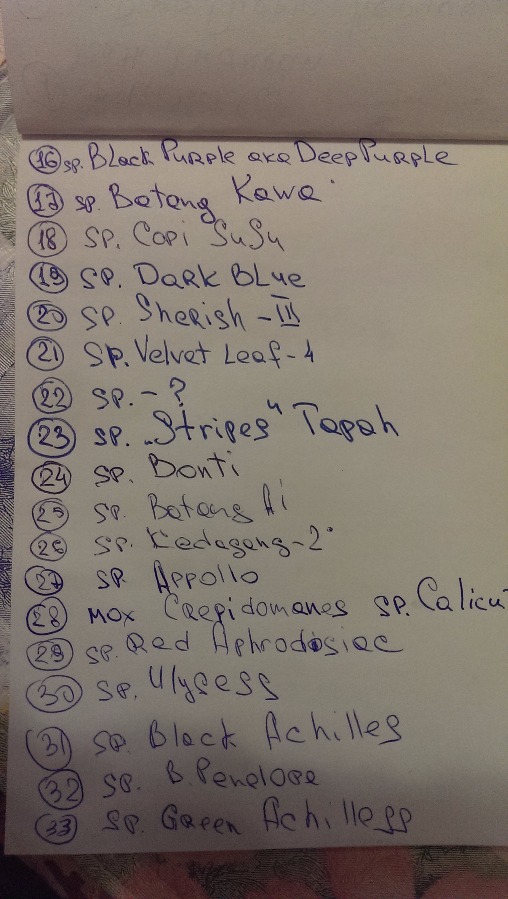 16 sp. Black Purple aka Deep Purple
17 sp. Batang Kawa
18 sp. Copi SuSu
19 sp. Dark Blue
20 sp. Sherish - III
21 sp. Velvet Leaf - 4
22 sp. - ?
23 sp. „Stripes“ Tapah
24 sp. Bonti
25 sp. Batang Ai
26 sp. Kedagang - 2
27 sp. Appollo
28 мох Crepidomanes sp. Calicut
29 sp. Red Aphrodisiac
30 sp. Ulysess
31 sp. Black Achilles
32 sp. B. Penelope
33 sp. Green Achilless